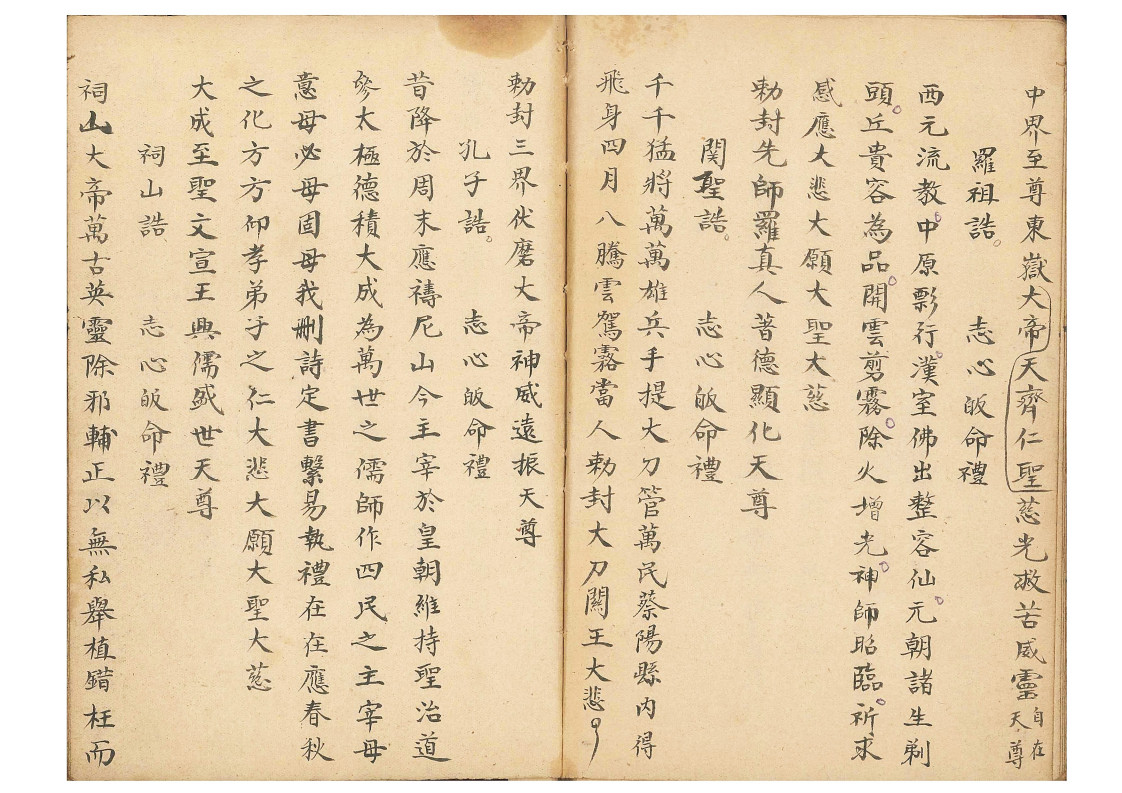 中界至尊東嶽大帝天齊仁聖慈光救苦威靈自在天尊
羅祖誥。 志心皈命禮
西元流教。中原票行。漢室佛出整容仙。元朝諸生剃
頭。丘貴容為品。開雲剪霧。除火增光。神師昭臨。祈求
感應大悲大願大聖大慈
勅封先師羅真人著德顯化天尊
関聖誥。 志心皈命禮
千千猛將萬萬雄兵手提大刀管萬民蔡陽縣內得
飛身四月八騰雲駕霧當人勅封大刀關王大悲
勅封三界伏磨大帝神威遠振天尊
孔子誥。 志心皈命禮
昔降於周末應禱尼山今主宰於皇朝維持聖治道
參太極德積大成為萬世之儒師作四民之主宰毋
意毋必毋固毋我删詩定書繫易執禮在在應春秋
之化方方仰孝弟子之仁大悲大願大聖大慈
大成至聖文宣王興儒盛世天尊
祠山誥 志心皈命禮
祠山大帝萬古英靈除邪輔正以無私舉植錯枉而